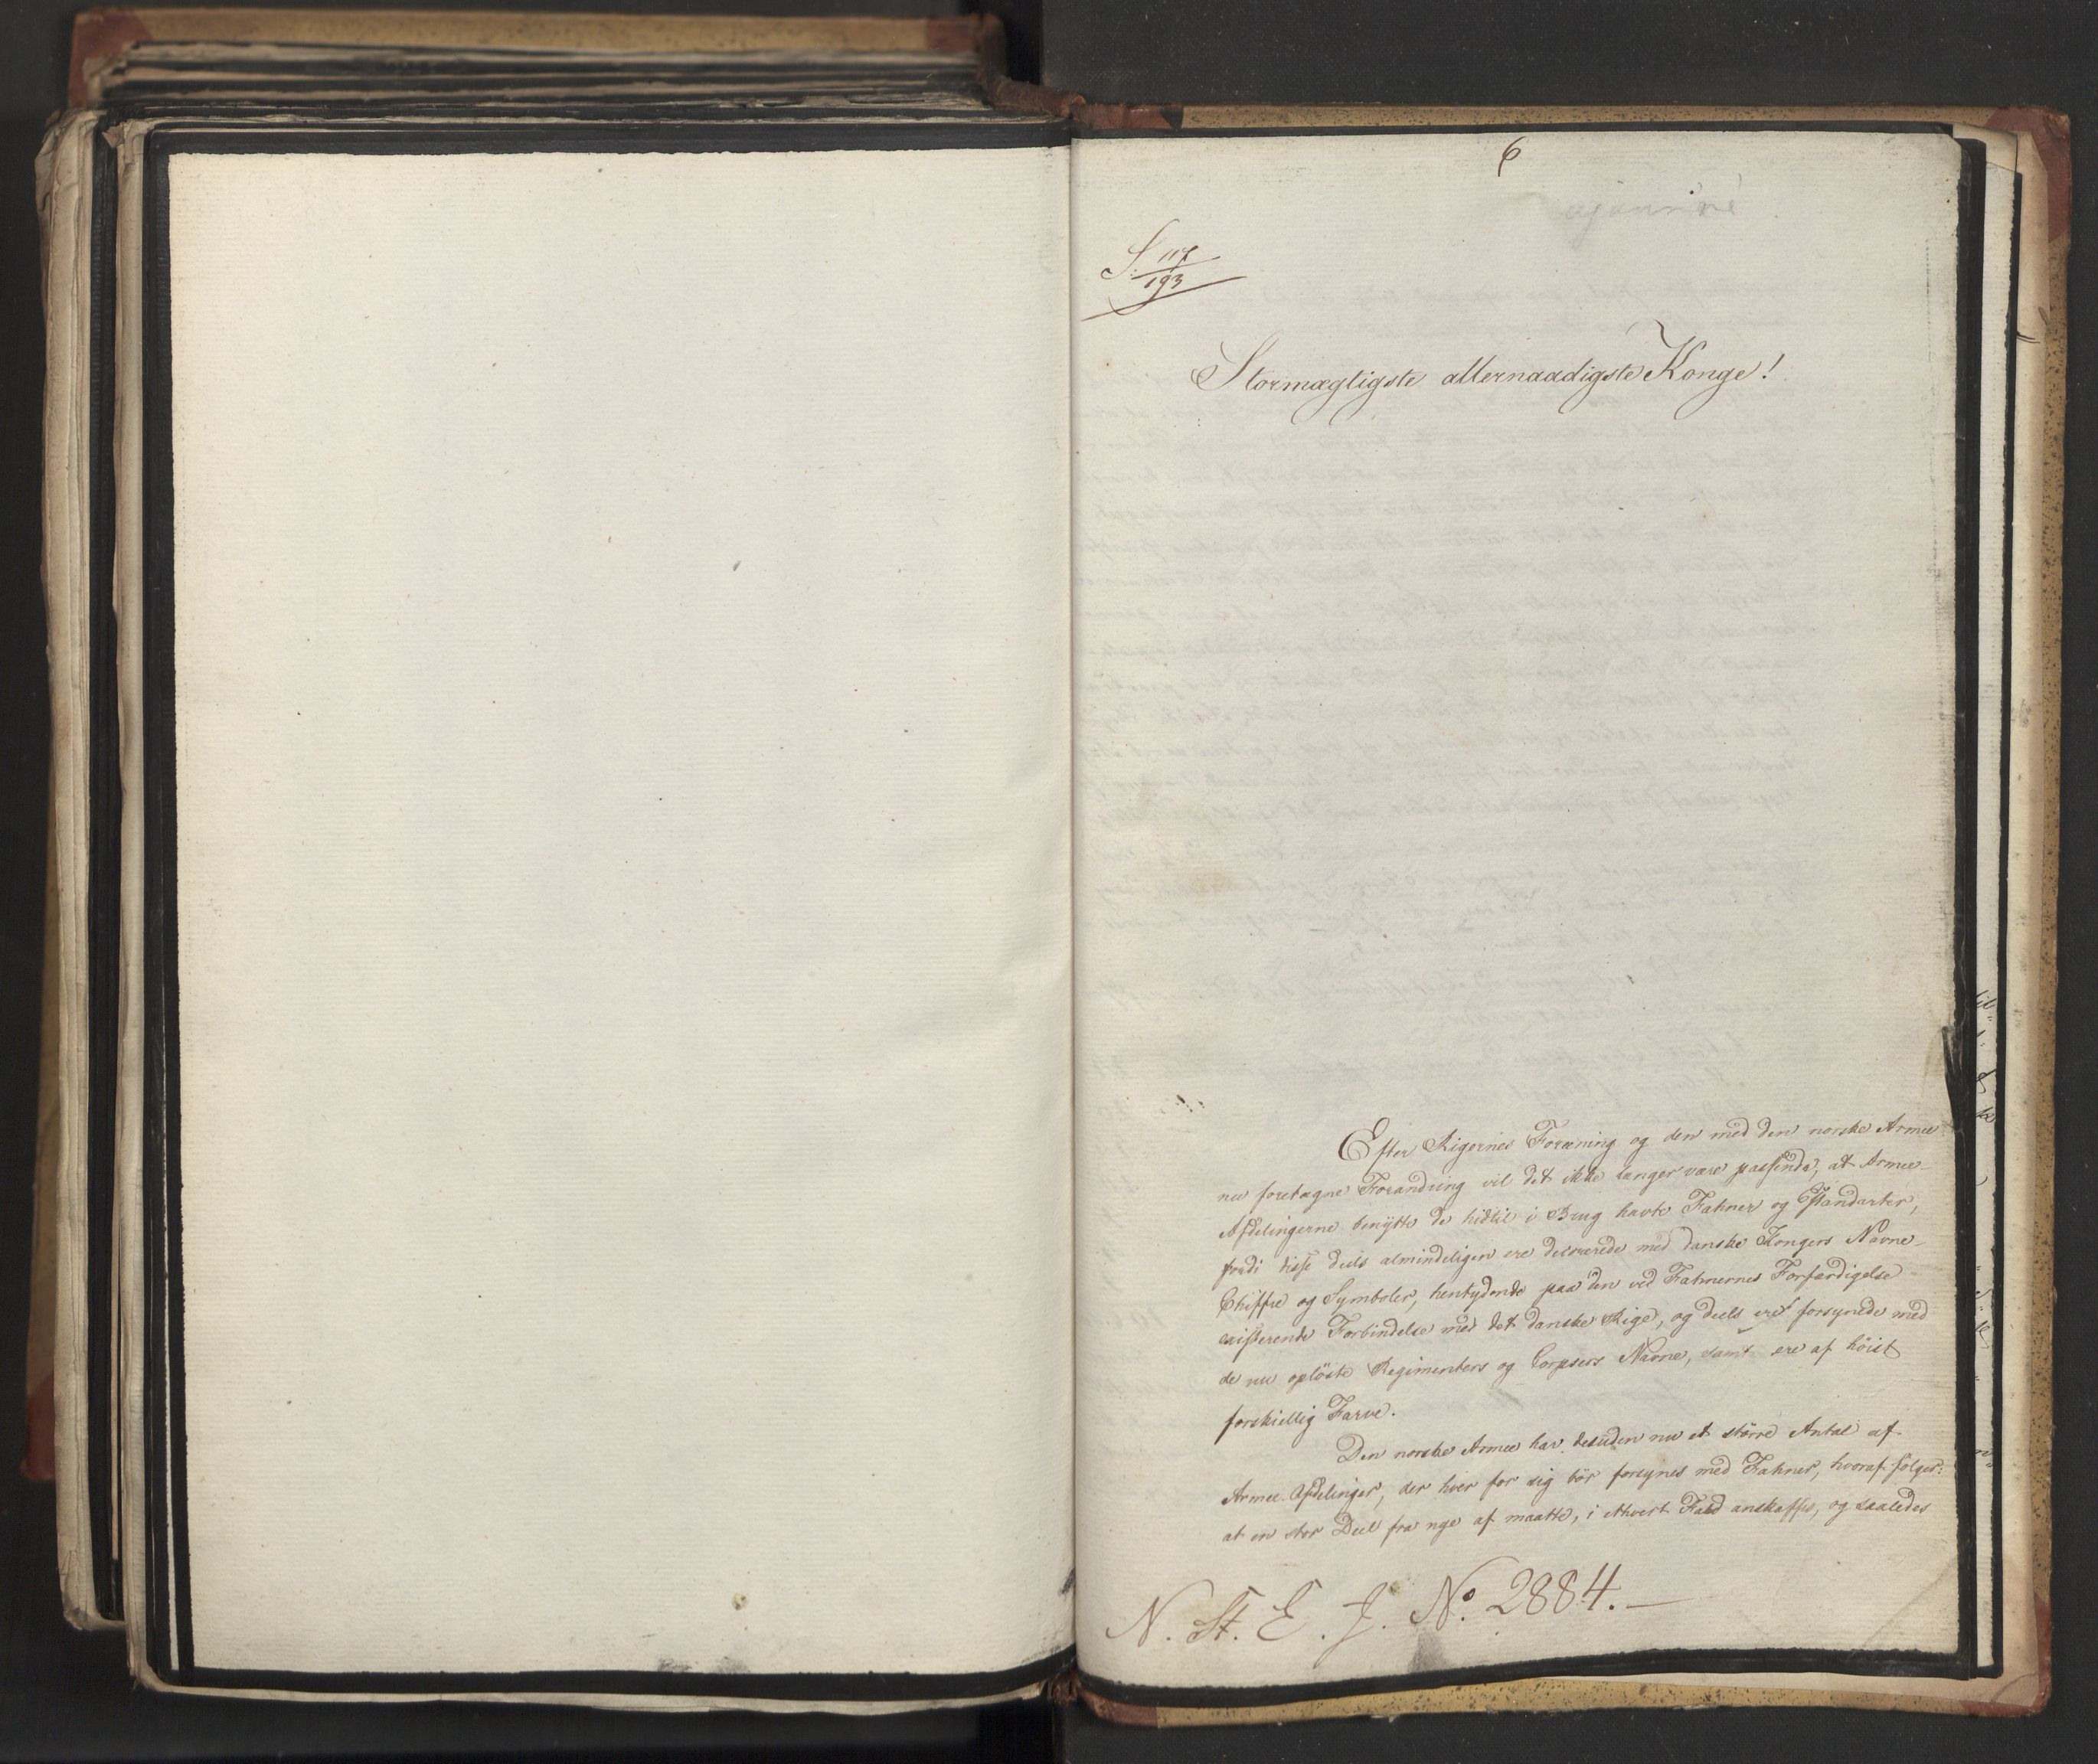 6
S. 117
193
Stormægtigste allernaadigste Konge!
Efter Rigernes Forening og den med den norske Armee
nu foretagne Forandring vil det ikke længer være passende, at Armee-
Afdelingerne benytte de hidtil i Brug havte Fahner og Estandarter,
fordi disse deels almindeligen ere decorerede med danske Kongers Navne-
Chiffre og Symboler, hentydende paa den ved Fahnernes Forfærdigelse
existerende Forbindelse med det danske Rige, og deels ere forsynede med
de nu opløste Regimenters og Corpsers Navne, samt ere af høist
forskiellig Farve.
Den norske Armee har desuden nu et større Antal af
Armee-Afdelinger, der hver for sig bør forsynes med Fahner, hvoraf følger:
at en stor Deel fra nye af maatte, i ethvert Fald anskaffes, og saaledes
N. St. E. J. No. 2884.—